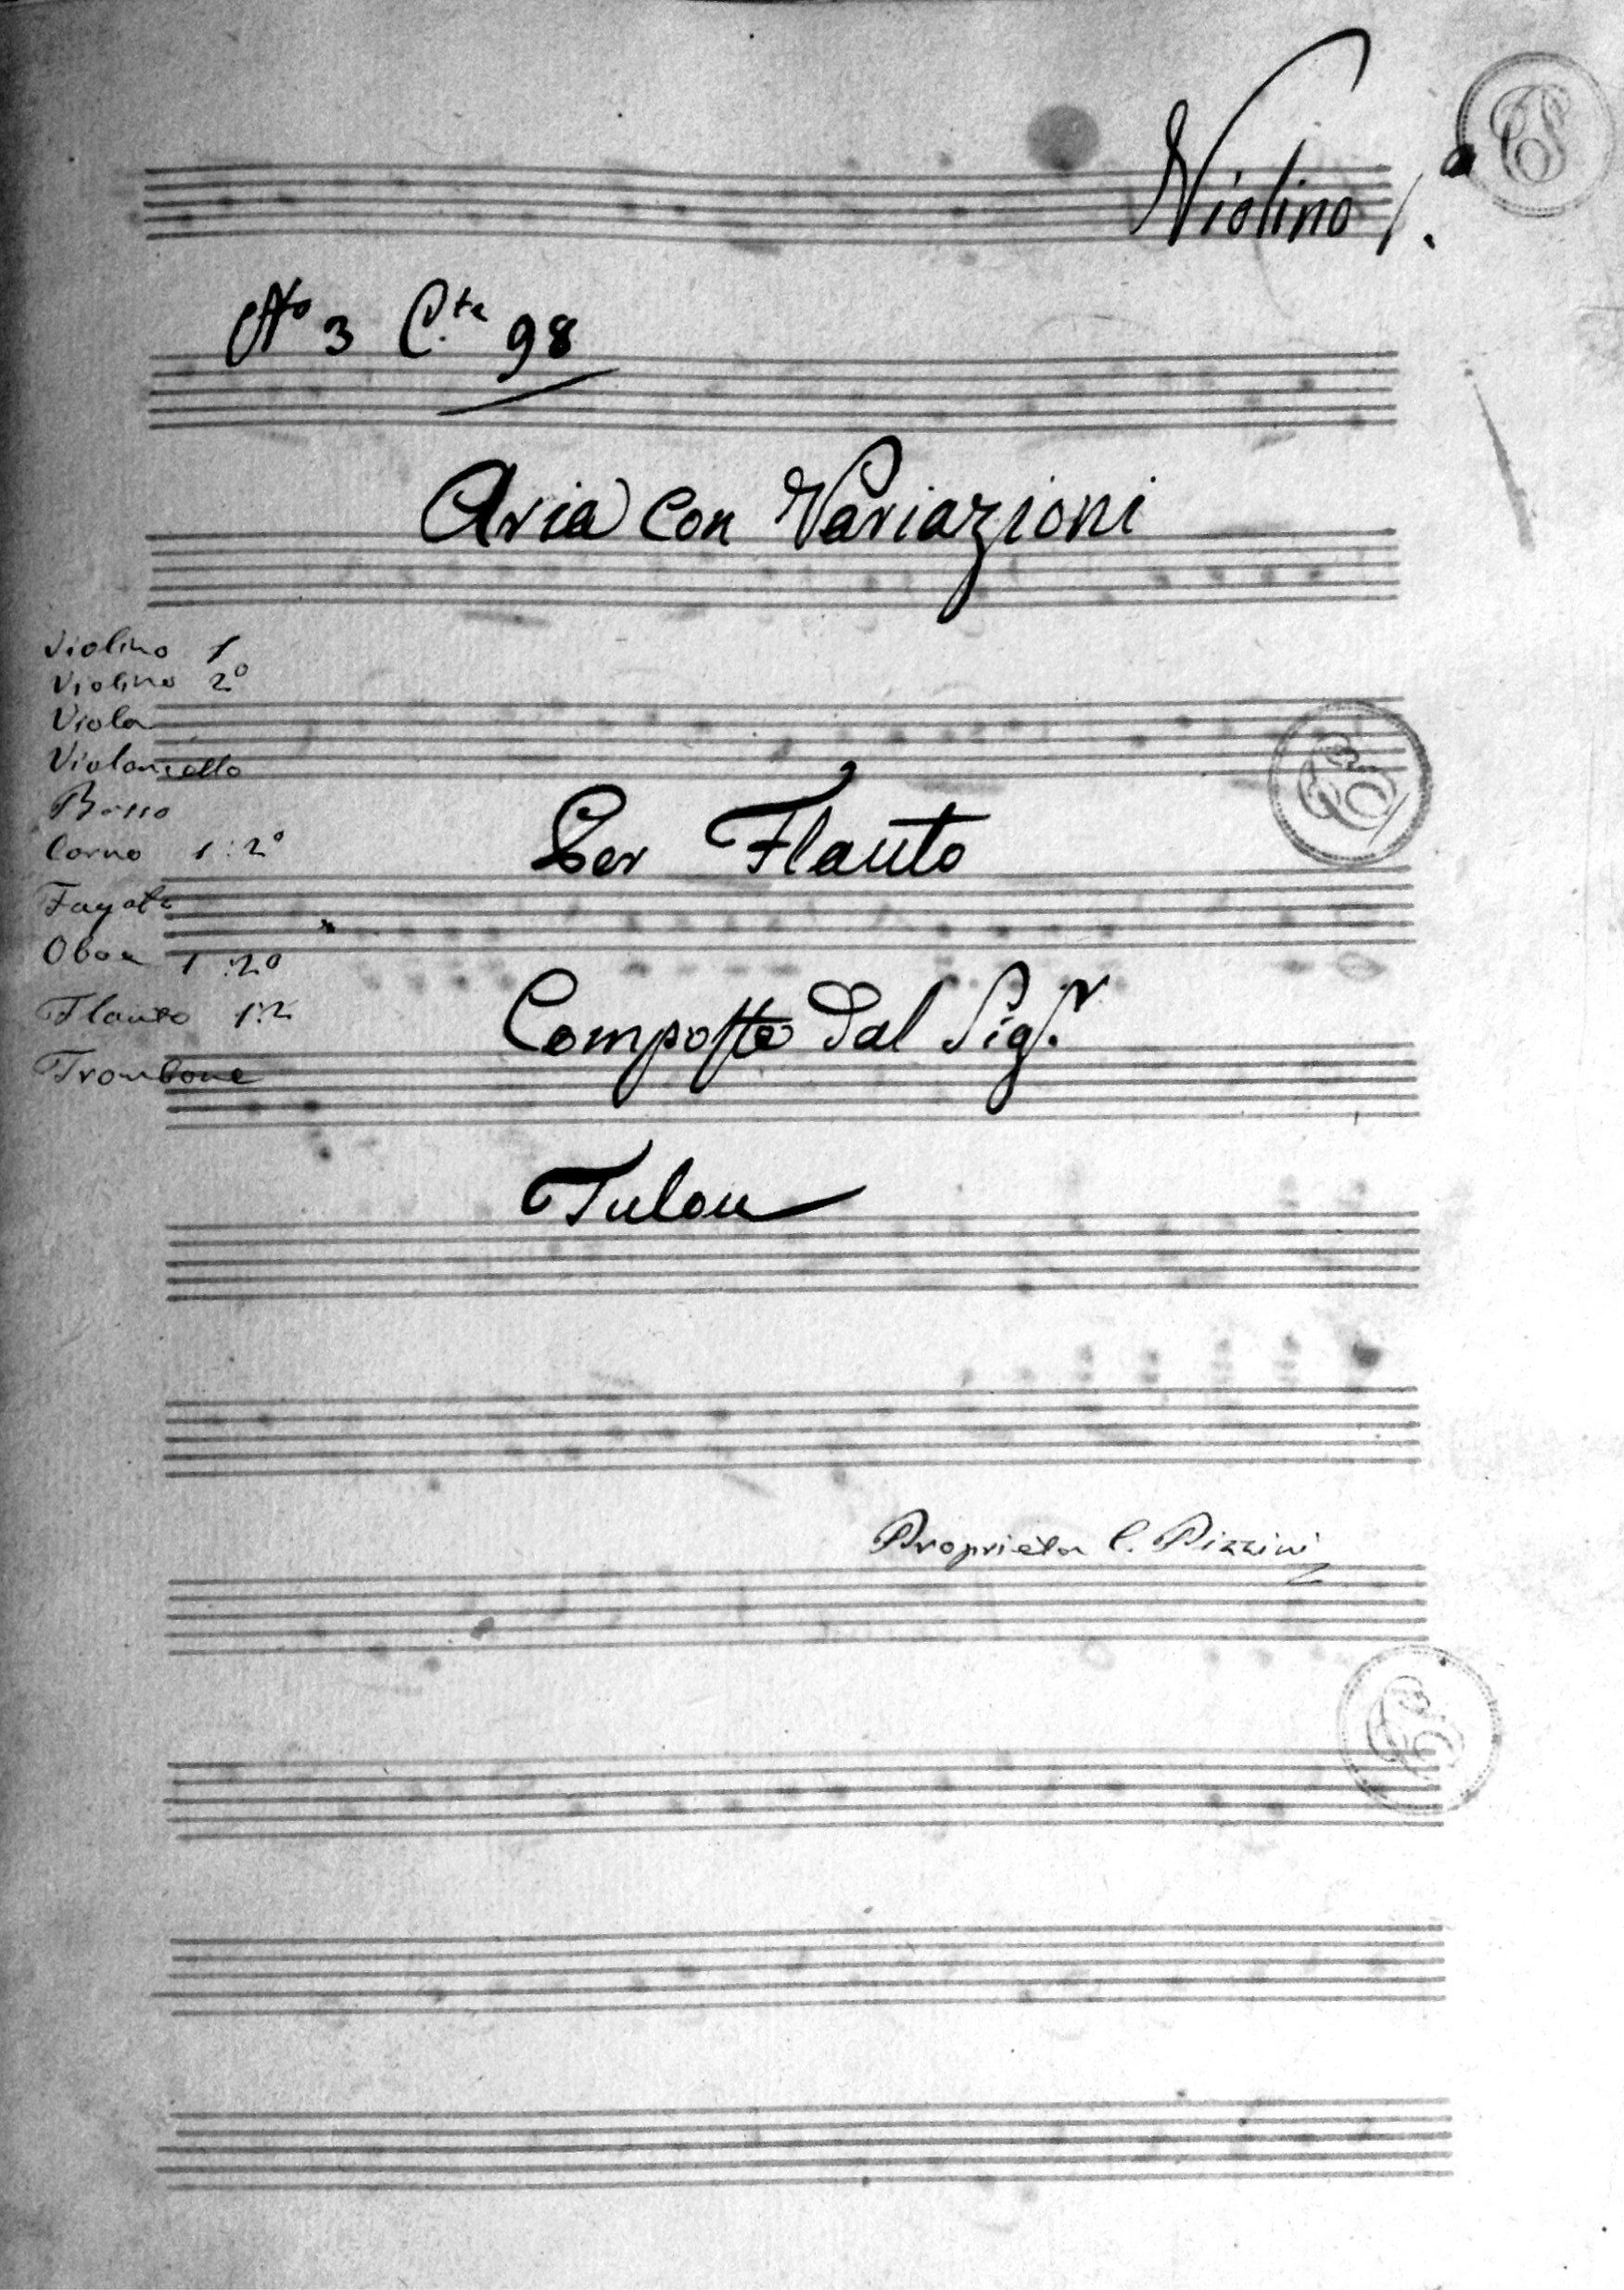 Violino 1.º
Nº 3 C.te 98
Aria con Variazioni
Violino 1
Violino 2º
Viola
Violoncello
Basso
Corno 1:2º
Fagoto
Oboe 1:2º
Flauto 1:2
Trombone
Per Flauto
Composte Dal Sig.r
Tulou
Proprieta C. Pizzini